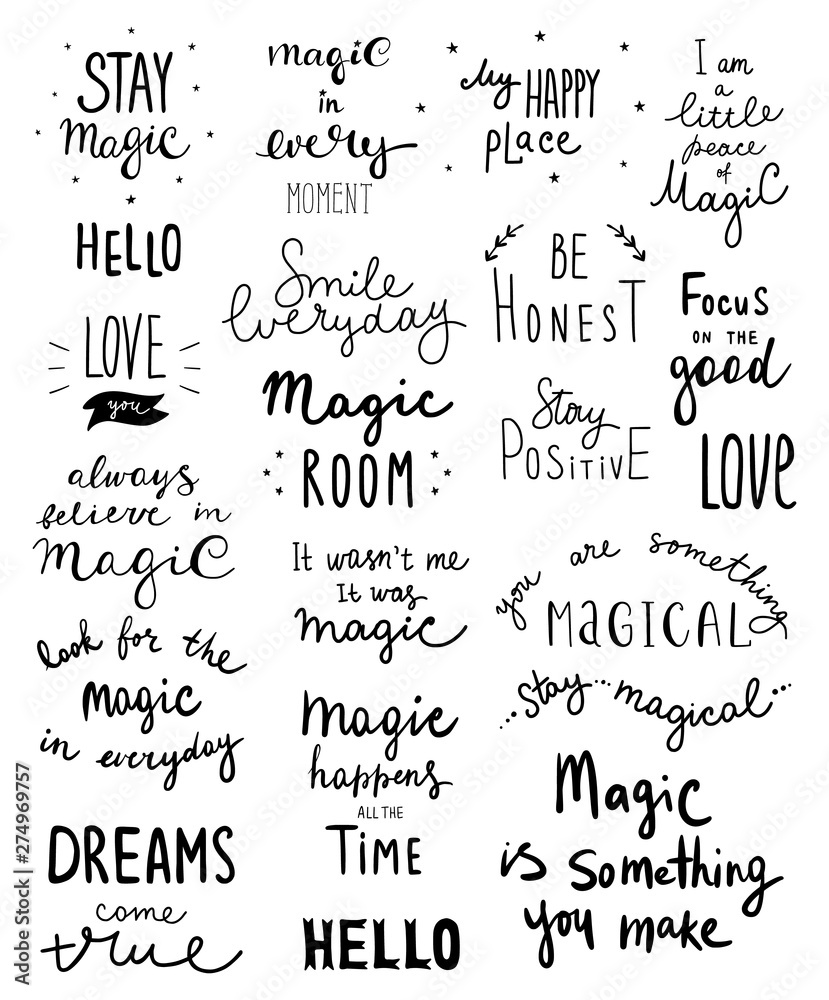 STAY
Magic
magic
in
every
MOMENT
My HAPPY
PLACE
I am
a
little
peace
of
Magic
HELLO
Smile
Everyday
BE
HONEST
Focus
ON THE
good
LOVE
you
Magic
ROOM
Stay
POSITIVE
LOVE
always
believe in
Magic
It wasn't me
It was
magic
you are something
MAGICAL
look for the
magic
in everyday
Magic
happens
ALL THE
TIME
...stay...magical...
Magic
is something
you make
DREAMS
come
true
HELLO
Adobe Stock | #274969757